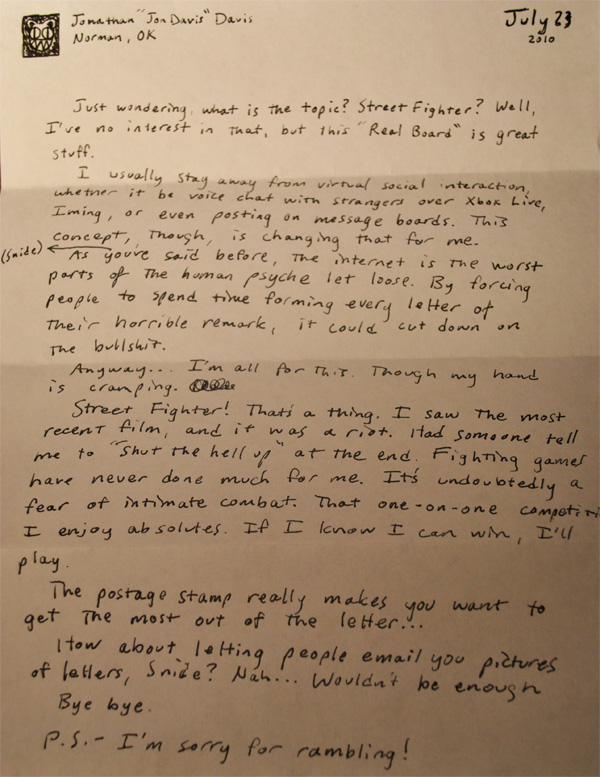 Jonathan "Jon Davis" Davis
Norman, OK
July 23
2010
Just wondering, what is the topic? Street Fighter? Well,
I've no interest in that, but this "Real Board" is great
stuff.
I usually stay away from virtual social interaction,
whether it be voice chat with strangers over Xbox Live,
IMing, or even posting on message boards. This
concept, though, is changing that for me.
(Snide)
As you've said before, the internet is the worst
parts of the human psyche let loose. By forcing
people to spend time forming every letter of
their horrible remark, it could cut down on
the bullshit.
Anyway... I'm all for this. Though my hand
is cramping.
Street Fighter! That's a thing. I saw the most
recent film, and it was a riot. Had someone tell
me to "shut the hell up" at the end. Fighting games
have never done much for me. It's undoubtedly a
fear of intimate combat. That one-on-one competiti
I enjoy absolutes. If I know I can win, I'll
play.
The postage stamp really makes you want to
get the most out of the letter...
How about letting people email you pictures
of letters, Snide? Nah... Wouldn't be enough
Bye bye.
P.S.- I'm sorry for rambling!